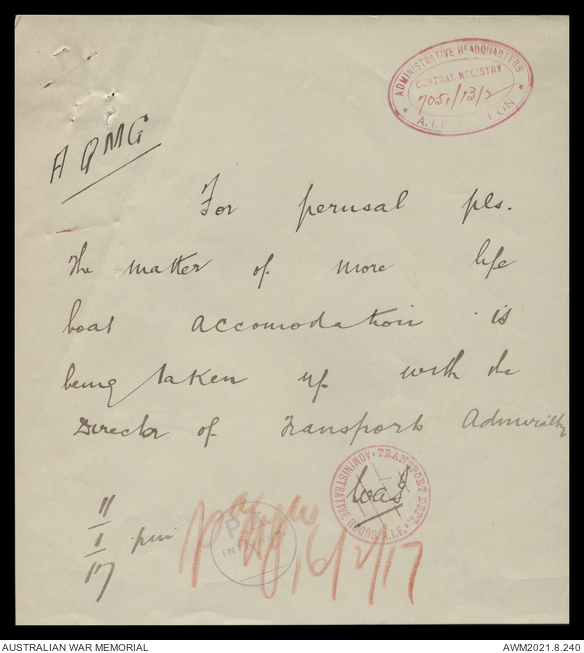 ADMINISTRATIVE HEADQUARTERS
CENTRAL REGISTRY
7051/13/2
A.I.F. LONDON
A QMG
For perusal pls.
The matter of more life
boat accomodation is
being taken up with the
Director of Transports Admiralty
TRANSPORT DEPT.
ADMINISTRATIVE HDQRS A.I.F.
11
1
17
pa
16/2/17
AUSTRALIAN WAR MEMORIAL
AWM2021.8.240